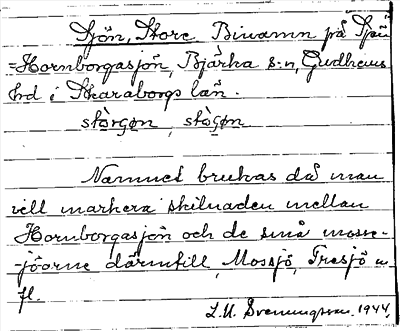 Sjön, Store Binamn på Sjön
=Hornborgasjön, Bjärka s:n, Gudhems
hd i Skaraborgs län.
stòrgøn, stògøn
Namnet brukas då man
vill markera skilnaden mellan
Hornborgasjön och de små mosse-
-jöarne därintill, Mossjö, Tresjö m
fl.
L.U. Svenungsson 1944.